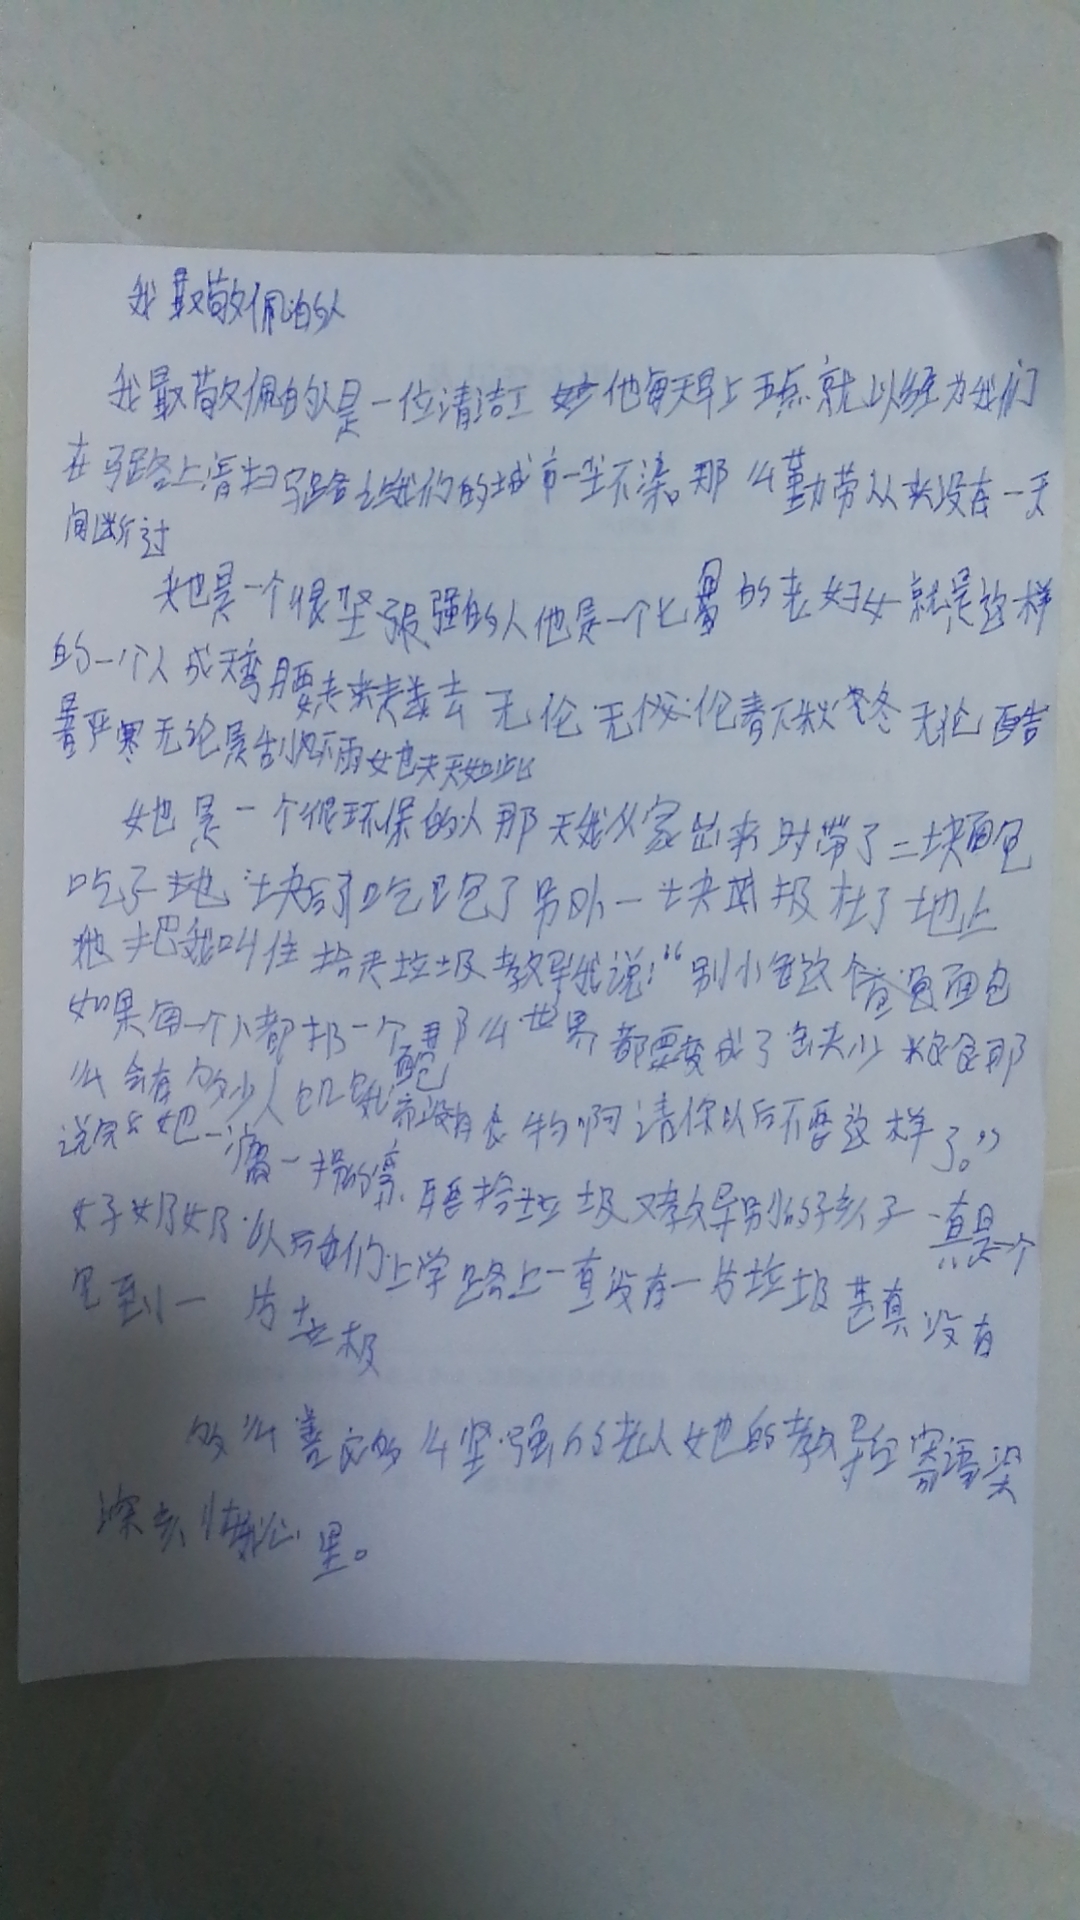 我最敬佩的人
我最敬佩的人是一位清洁工 他每天早上五点就以经为我们
在马路上清扫马路让我们的城市一尘不染。那么勤劳从来没有一天
间断过
她是一个很坚强的人他是一个七 的老妇女就是这样
的一个人成天弯腰走来走去 无伦春下秋冬无论酷
暑严寒无论是刮风下雨她天天如此
她是一个很环保的人那天我从家出来时带了二块面包
吃了 块后 吃 包了另外一块 极 在了地上
她把我叫住拾夹垃圾教导我说:“别小看这个面包
如果每一个人都扔一个面包那么世界都要变成了 缺少粮食那
么会有多少人饥饿 没有食物啊请你以后不要这样了。”
说完她一瘸一拐的弯腰拾垃圾又教导别的孩子 真是一个
好奶奶以后我们上学路上一直没有一片垃圾 真没有
见到一片垃极
多么善良多么坚强的老人她的教导
深刻 在我心里。